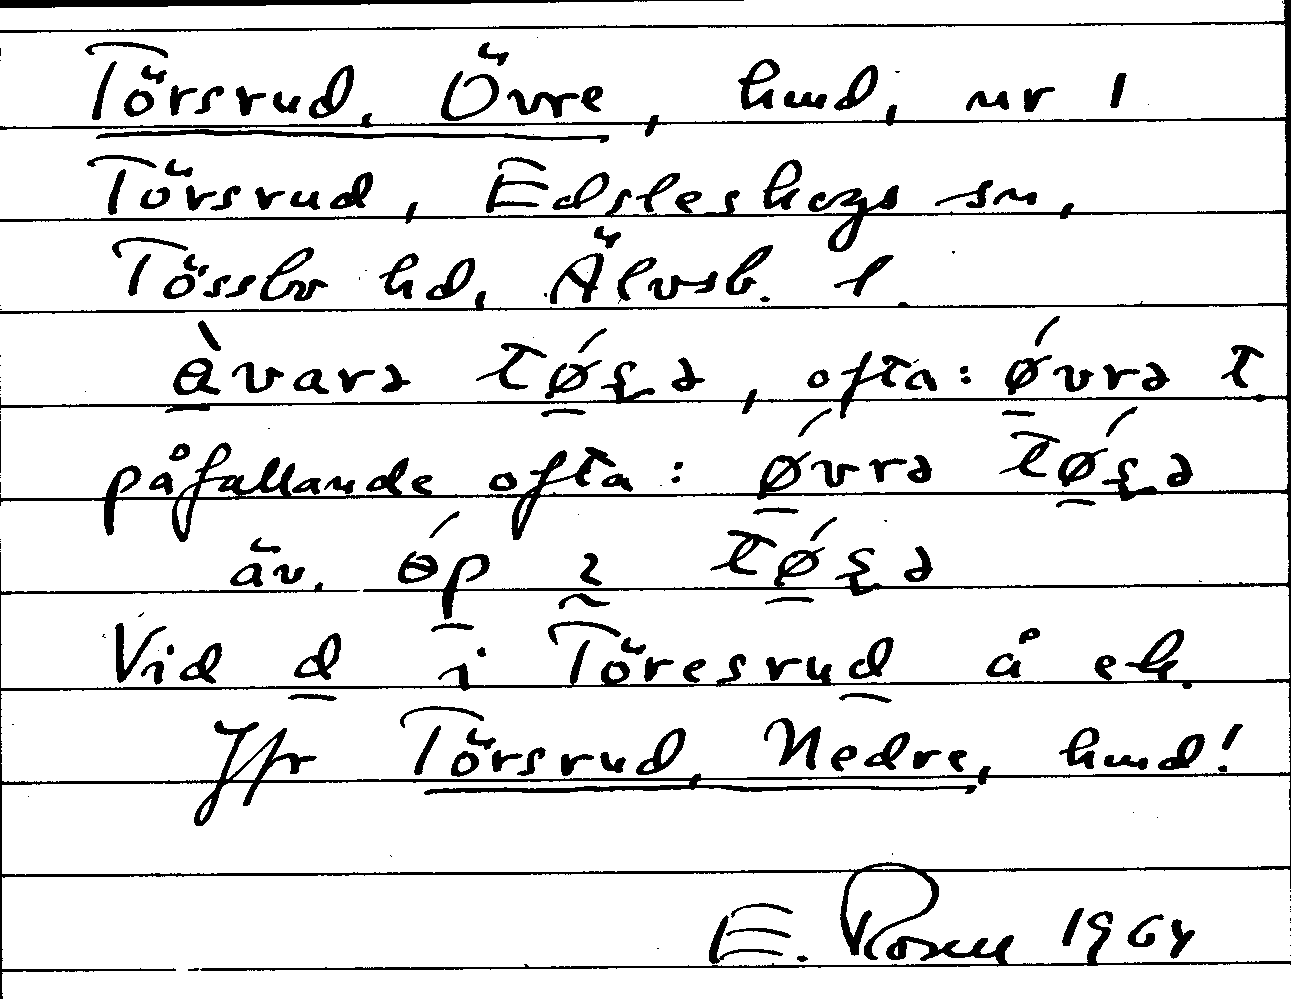 Törsrud, Övre, hmd, nr 1
Törsrud, Edsleskogs sn,
Tössbo hd, Älvsb. l.
ə̀vara tǿʂə, ofta: ǿvrə t.
påfallande ofta: ǿvrə tǿʂə
äv. ɵ́p tǿʂə
Vid d i Töresrud å ek.
Jfr Törsrud, Nedre, hmd!
E. Rosell 1964